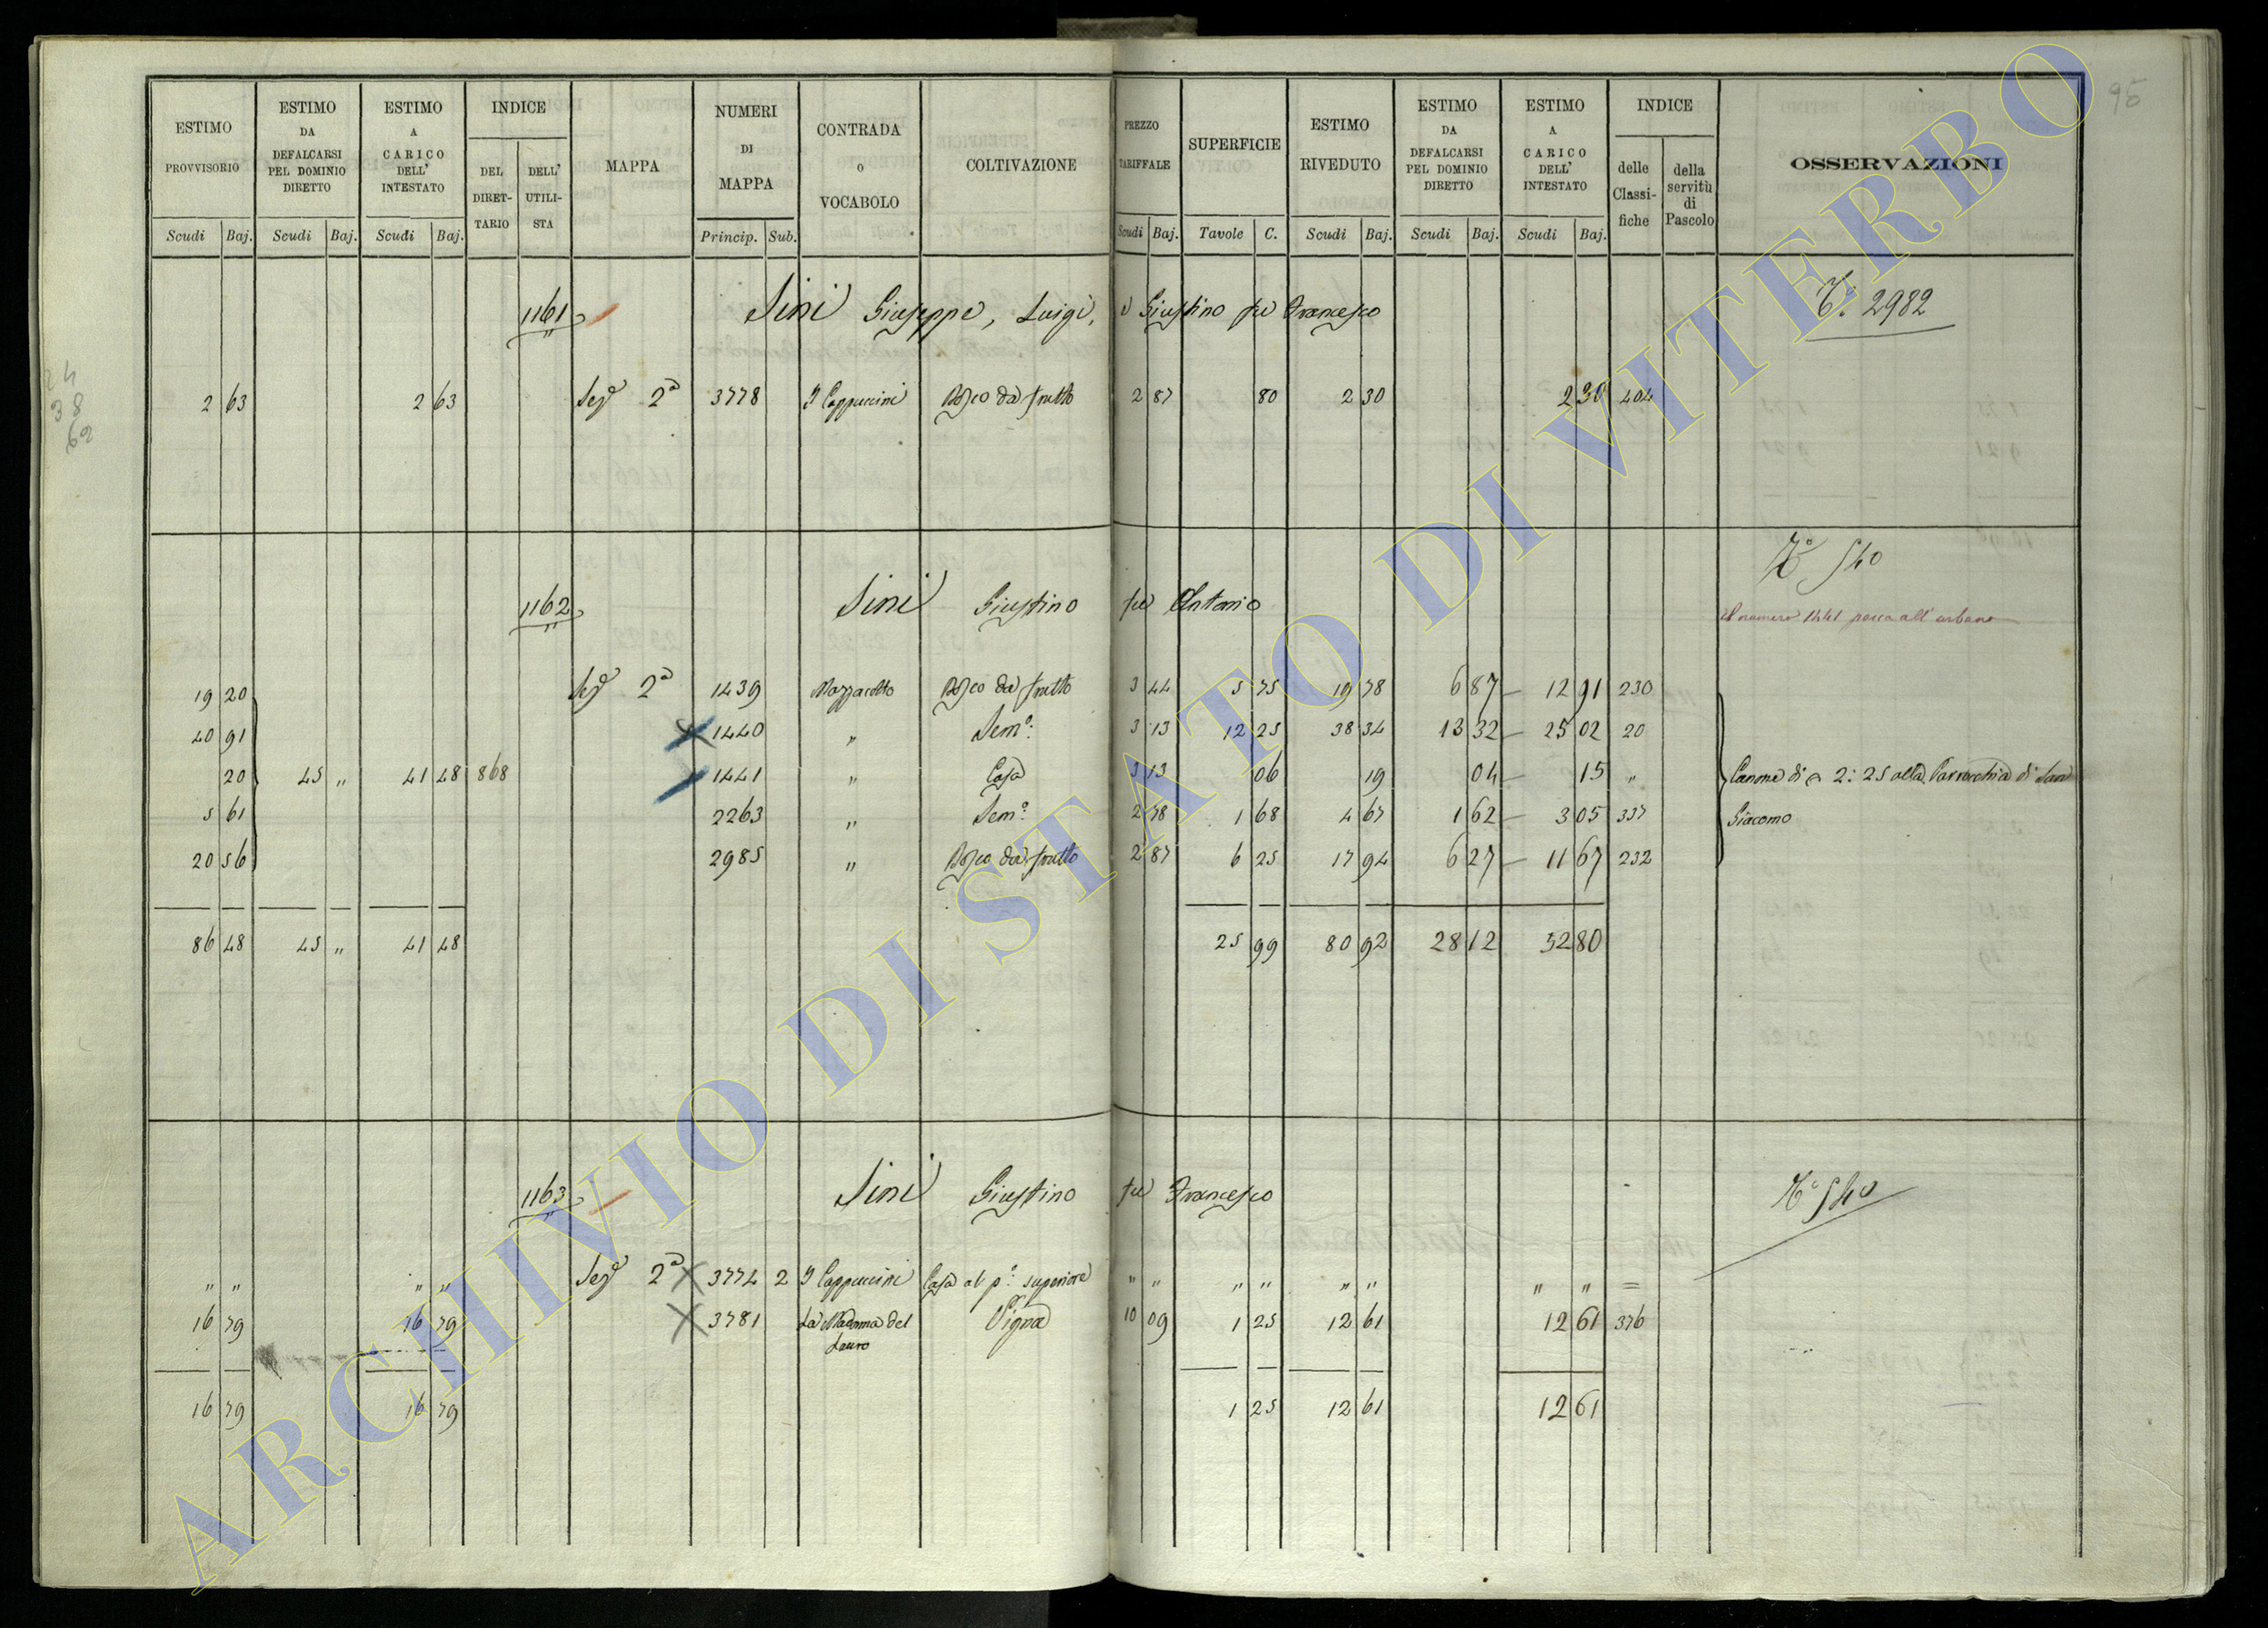 95
ESTIMO PROVVISORIO
ESTIMO DA DEFALCARSI PEL DOMINIO DIRETTO
ESTIMO A CARICO DELL' INTESTATO
INDICE
DEL DIRET-TARIO
DELL' UTILI-STA
MAPPA
NUMERI DI MAPPA
CONTRADA o VOCABOLO
COLTIVAZIONE
PREZZO TARIFFALE
SUPERFICIE
ESTIMO RIVEDUTO
ESTIMO DA DEFALCARSI PEL DOMINIO DIRETTO
ESTIMO A CARICO DELL' INTESTATO
INDICE
delle Classi-fiche
della servitù di Pascolo
OSSERVAZIONI
Scudi Baj. Scudi Baj. Scudi Baj. Princip. Sub. Scudi Baj. Tavole C. Scudi Baj. Scudi Baj. Scudi Baj.
1161 Sini Giuseppe, Luigi, e Giustino fu Francesco 2982
24
38
62
2 63 2 63 Sezᵉ 2ª 3778 I Cappuccini Bosco da frutto 2 87 80 2 30 2 30 404
Nº 540
1162 Sini Giustino fu Antonio
Il numero 1441 passa all' urbano
19 20 Sezᵉ 2ª 1439 Mazzacotto Bosco da frutto 3 44 5 75 19 78 6 87 12 91 230
40 91 1440 " Semº: 3 13 12 25 38 34 13 32 25 02 20
20 45 " 41 48 868 1441 " Casa 3 13 06 19 04 15 " Canone di 2: 25 alla Parrocchia di San
5 61 2263 " Semº: 2 78 1 68 4 67 1 62 3 05 337 Giacomo
20 56 2985 " Bosco da frutto 2 87 6 25 17 94 6 27 11 67 232
86 48 45 " 41 48 25 99 80 92 28 12 52 80
1163 Sini Giustino fu Francesco Nº 540
" " " " Sezᵉ 2ª 3774 2 I Cappuccini Casa al pº: superiore " " " " " " " " =
16 79 16 79 3781 La Madonna del Lauro Vigna 10 09 1 25 12 61 12 61 376
16 79 16 79 1 25 12 61 12 61
ARCHIVIO DI STATO DI VITERBO